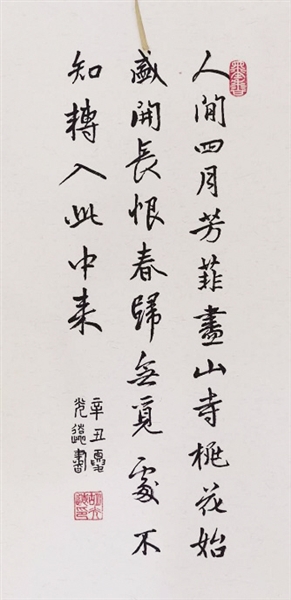 人間四月芳菲盡山寺桃花始
盛開長恨春歸無覓處不
知轉入此中來
辛丑夏
光遠書